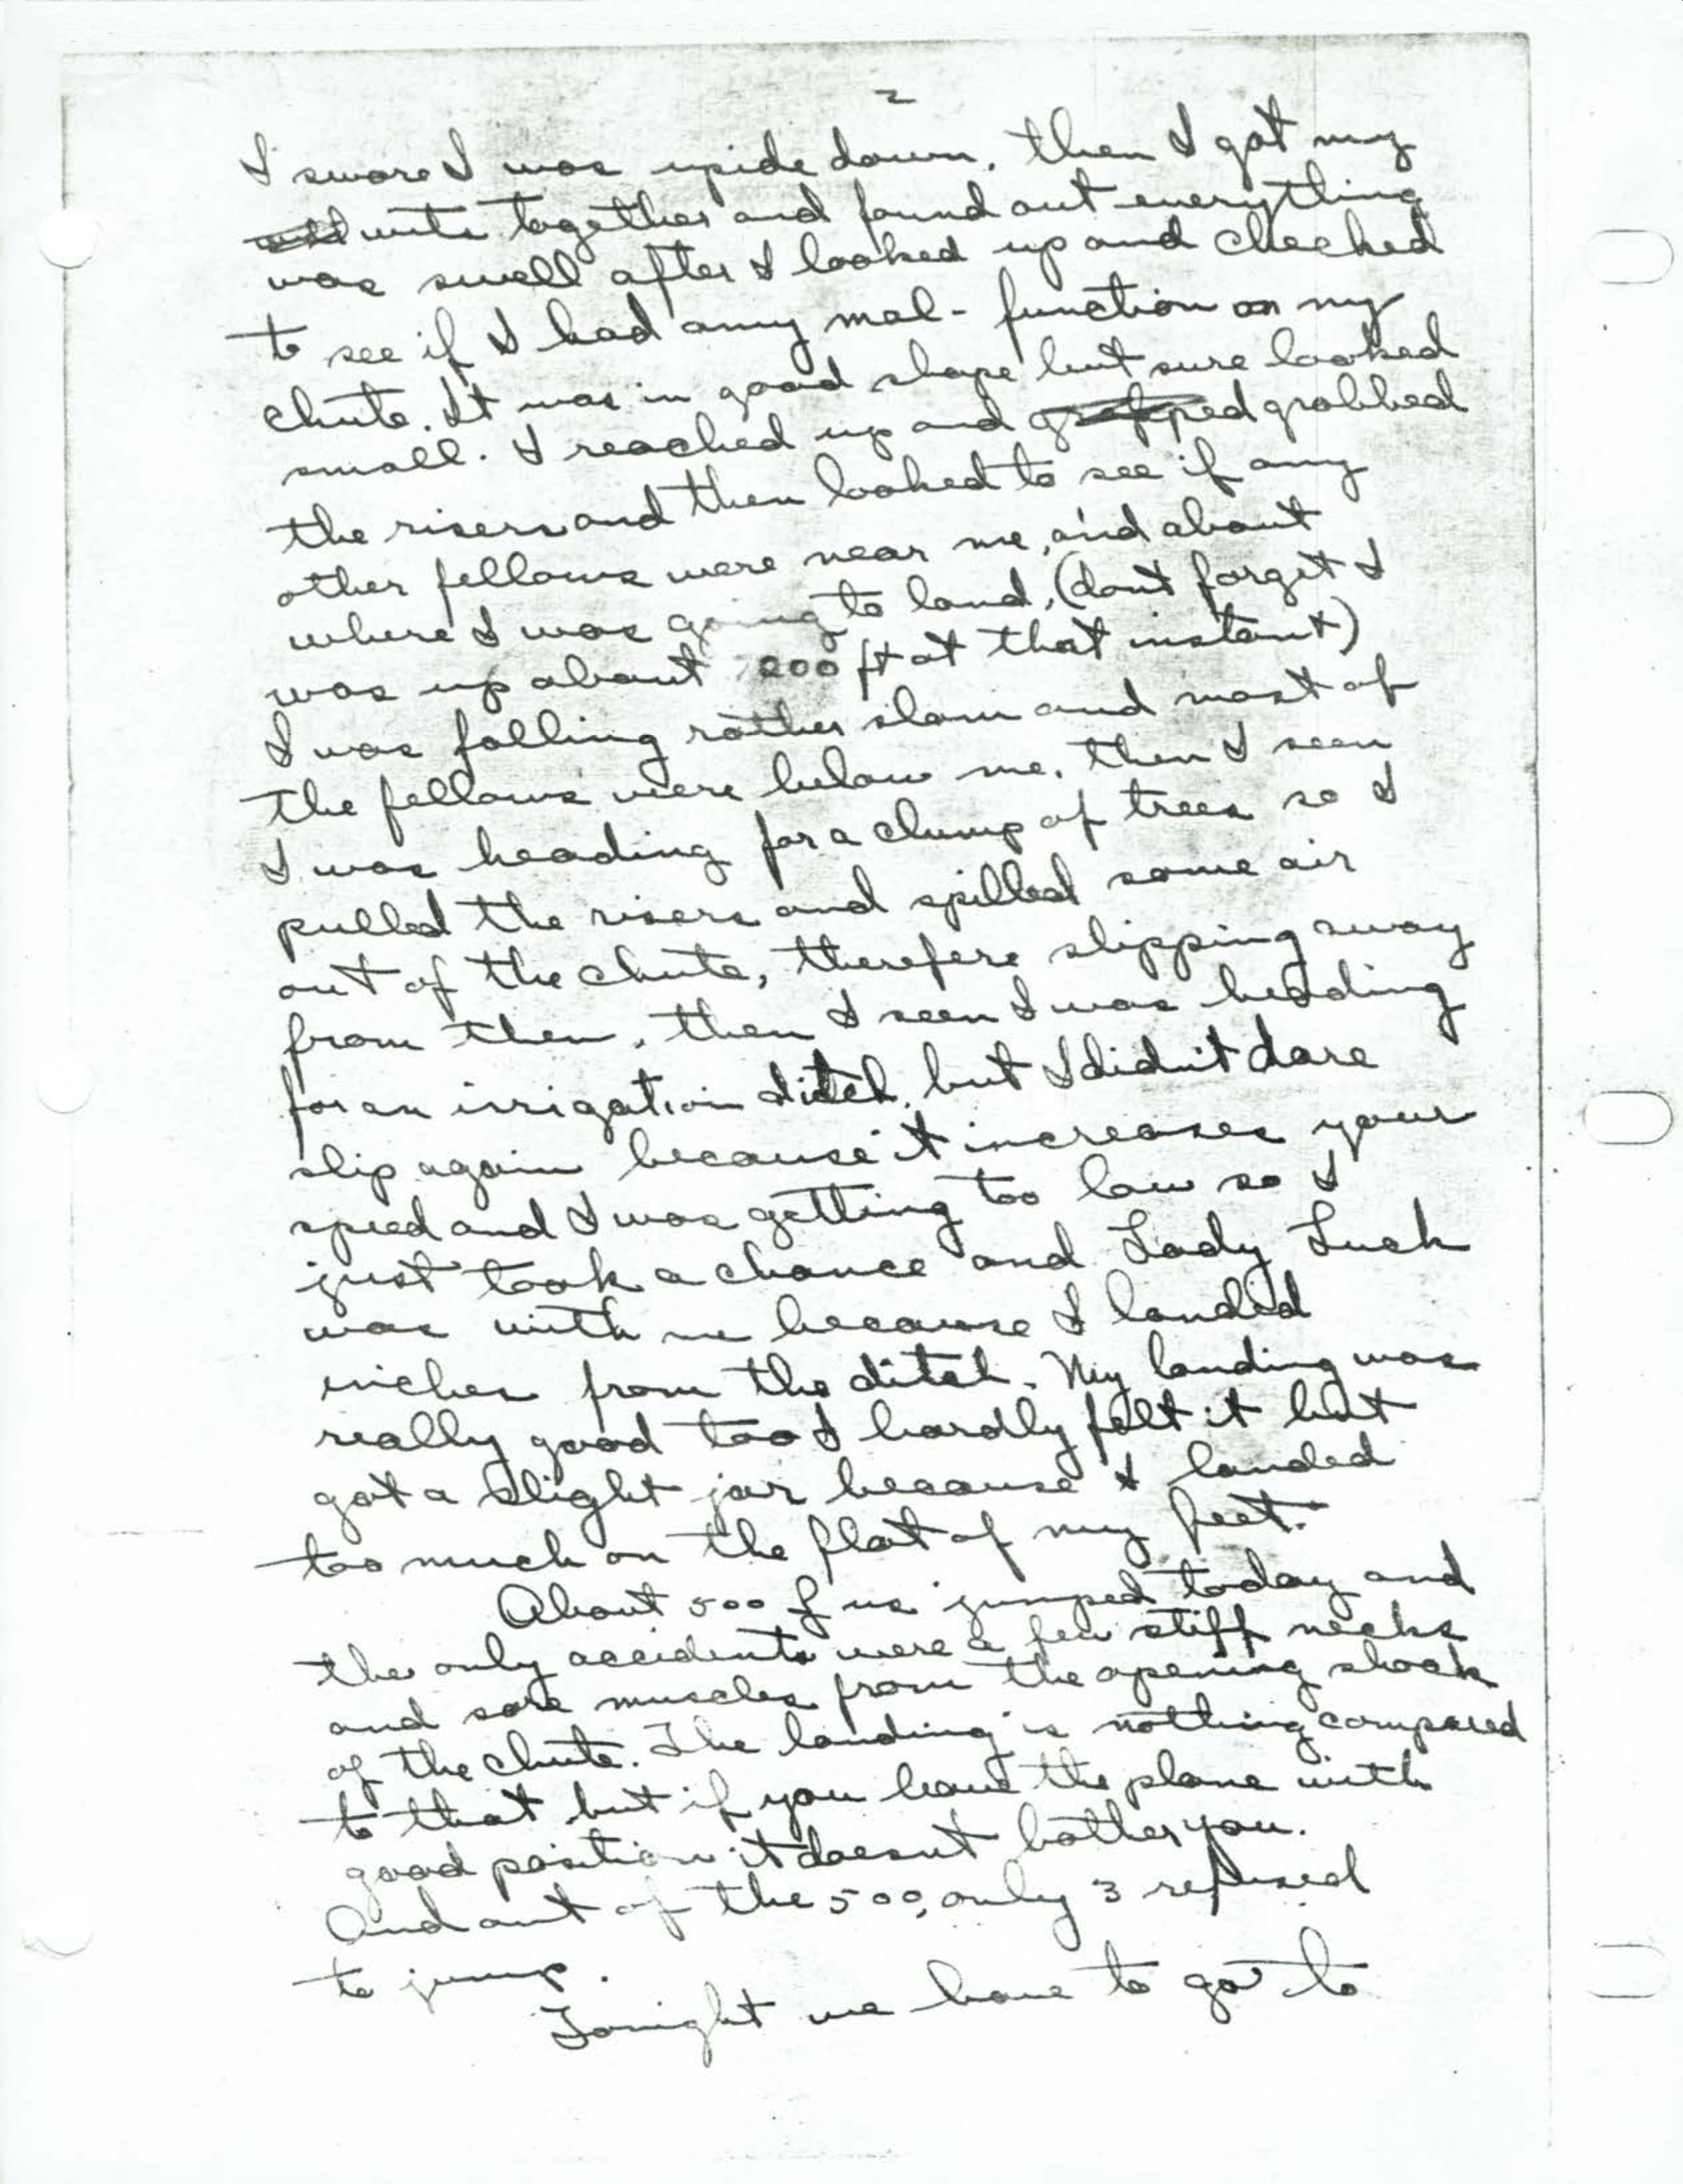 2
I swore I was upside down, then I got my
wits together and found out everything
was swell after I looked up and checked
to see if I had any mal-function on my
chute. It was in good shape but sure looked
small. I reached up and grabbed
the risers and then looked to see if any
other fellows were near me, and about
where I was going to land, (dont forget I
was up about 200 ft at that instant)
I was falling rather slow and most of
the fellows were below me, then I seen
I was heading for a clump of trees so I
pulled the risers and spilled some air
out of the chute, therefere slipping away
from them, then I seen I was heading
for an irrigation ditch, but I didn't dare
slip again because it increases your
speed and I was getting too low so I
just took a chance and Lady Luck
was with me because I landed
inches from the ditch. My landing was
really good too I hardly felt it but
got a slight jar because I landed
too much on the flat of my feet.
About 500 of us jumped today and
the only accidents were a few stiff necks
and sore muscles from the opening shock
of the chute. The landing is nothing compared
to that but if you leave the plane with
good position it doesnt bother you.
And out of the 500, only 3 refused
to jump.
Tonight we have to go to